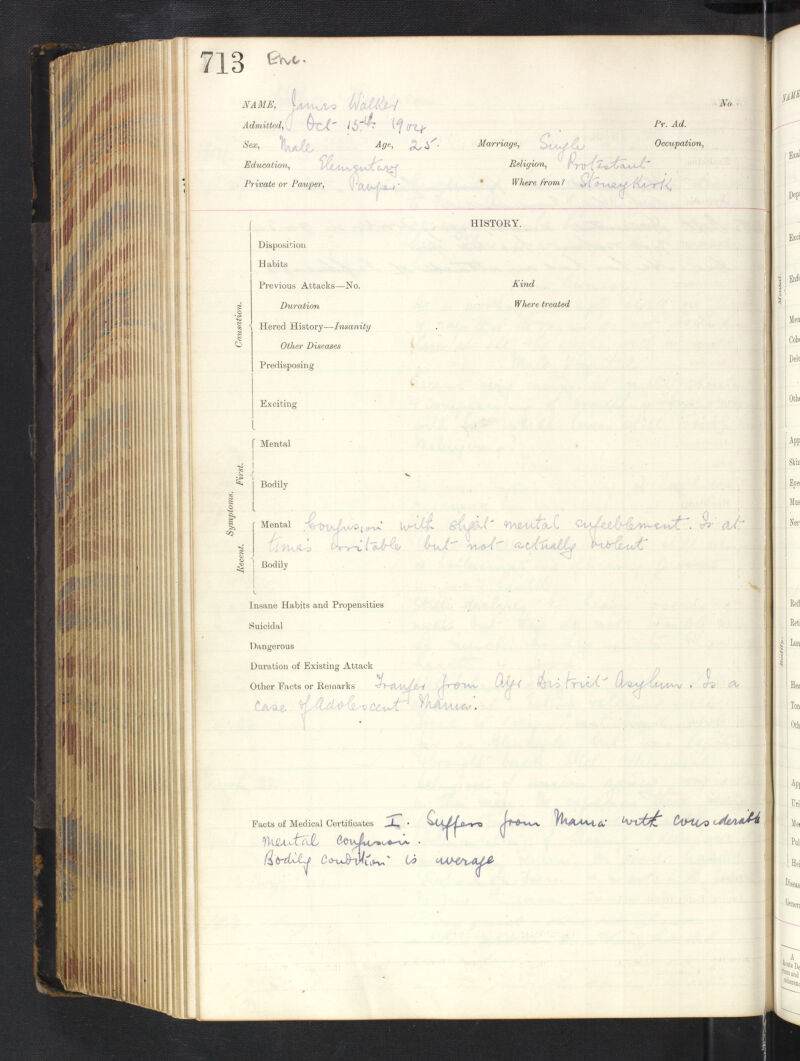 713
NAME, James Walker No
Admitted, Oct 15th 1904 Pr. Ad.
Sex, Male Age, 25. Marriage, Single Occupation,
Education, Elementary Religion, Protestant
Private or Pauper, Pauper Where from? Stoneykirk
HISTORY.
Causation.
Disposition
Habits
Previous Attacks—No. Kind
Duration Where treated
Hered History—Insanity
Other Diseases
Predisposing
Exciting
Symptoms.
First.
Mental
Bodily
Recent.
Mental Confusion with slight mental enfeeblement. Is at
times irritable but not actually violent
Bodily
Insane Habits and Propensities
Suicidal
Dangerous
Duration of Existing Attack
Other Facts or Remarks Transfer from Ayr District Asylum. Is a
case of Adolescent Mania.
Facts of Medical Certificates I. Suffers from Mania with considerable
mental confusion.
Bodily condition is average